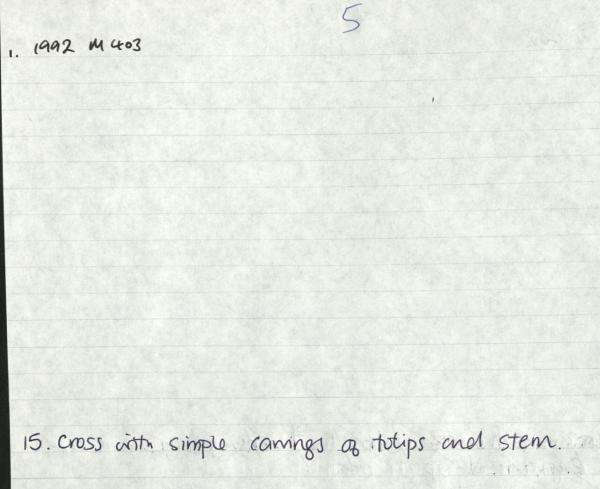 5
1. 1992 M 403
15. Cross with simple carvings of tulips and stem.